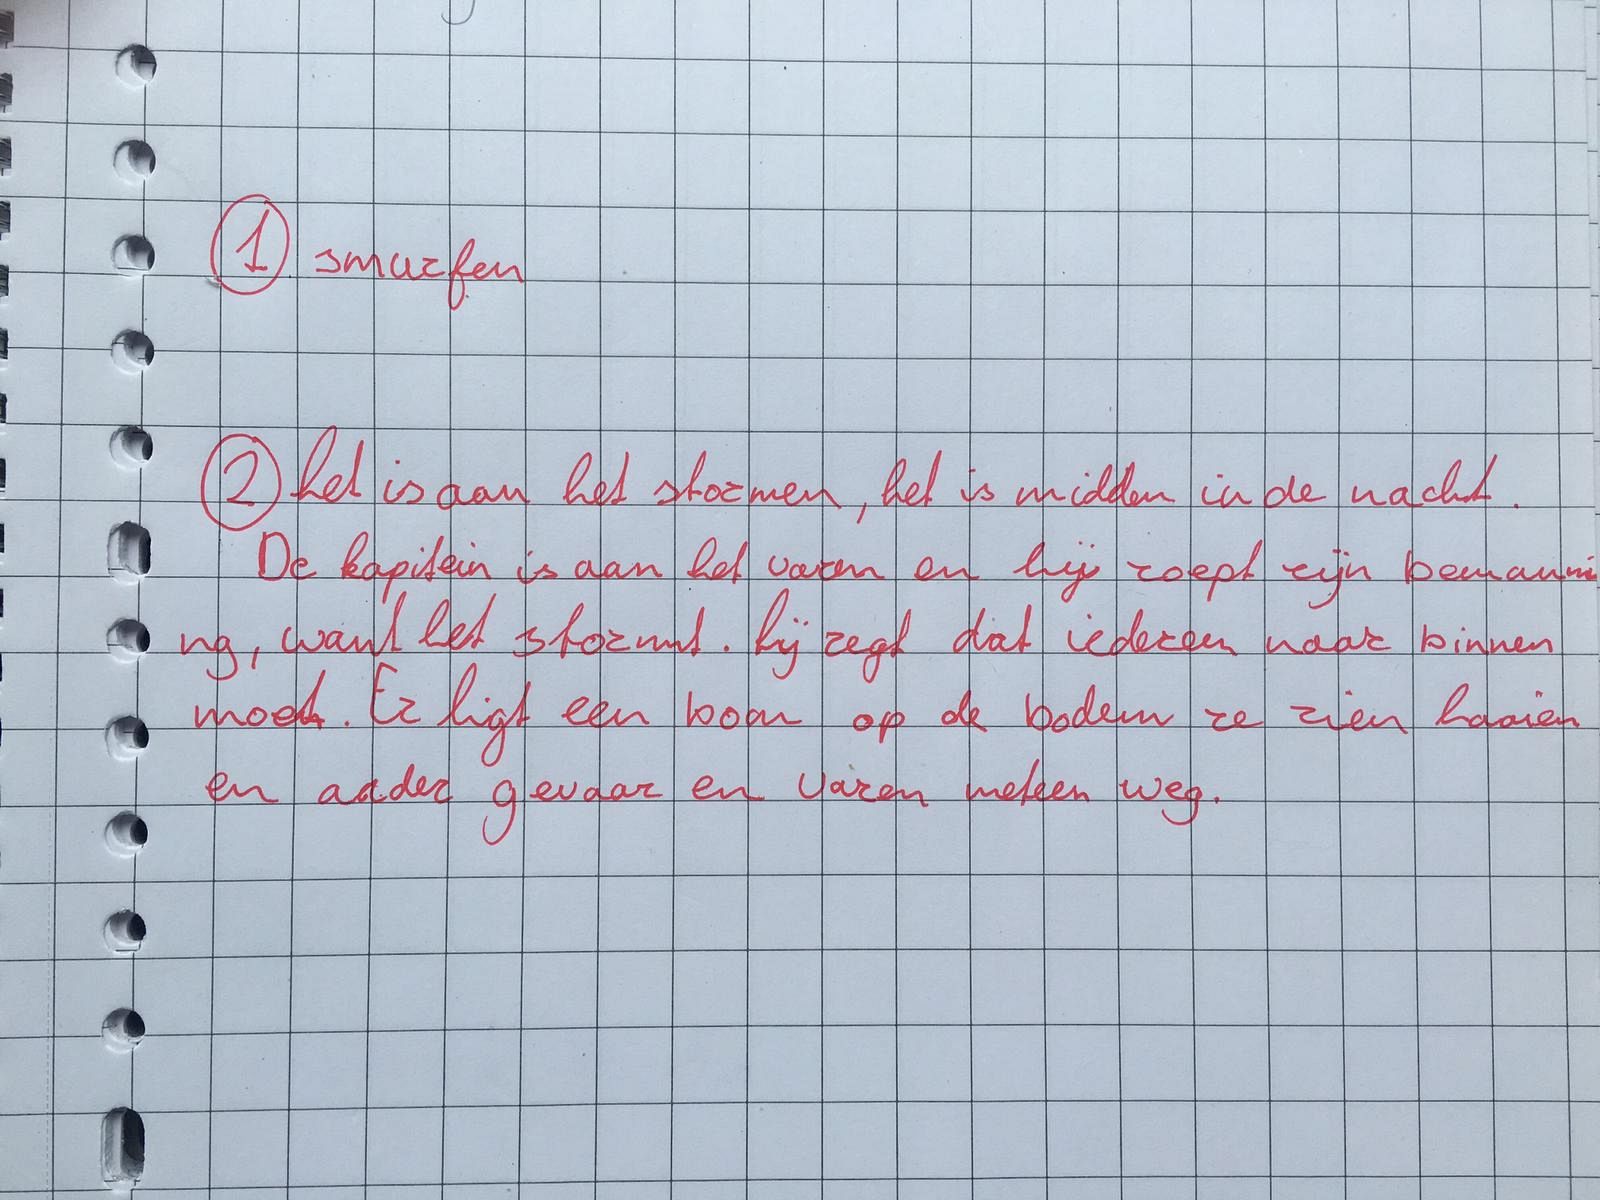 1 smurfen
2 het is aan het stormen, het is midden in de nacht.
De kapitein is aan het varen en hij roept zijn bemanni
ng, want het stormt. hij zegt dat iedereen naar binnen
moet. Er ligt een boom op de bodem ze zien haaien
en ander gevaar en varen meteen weg.